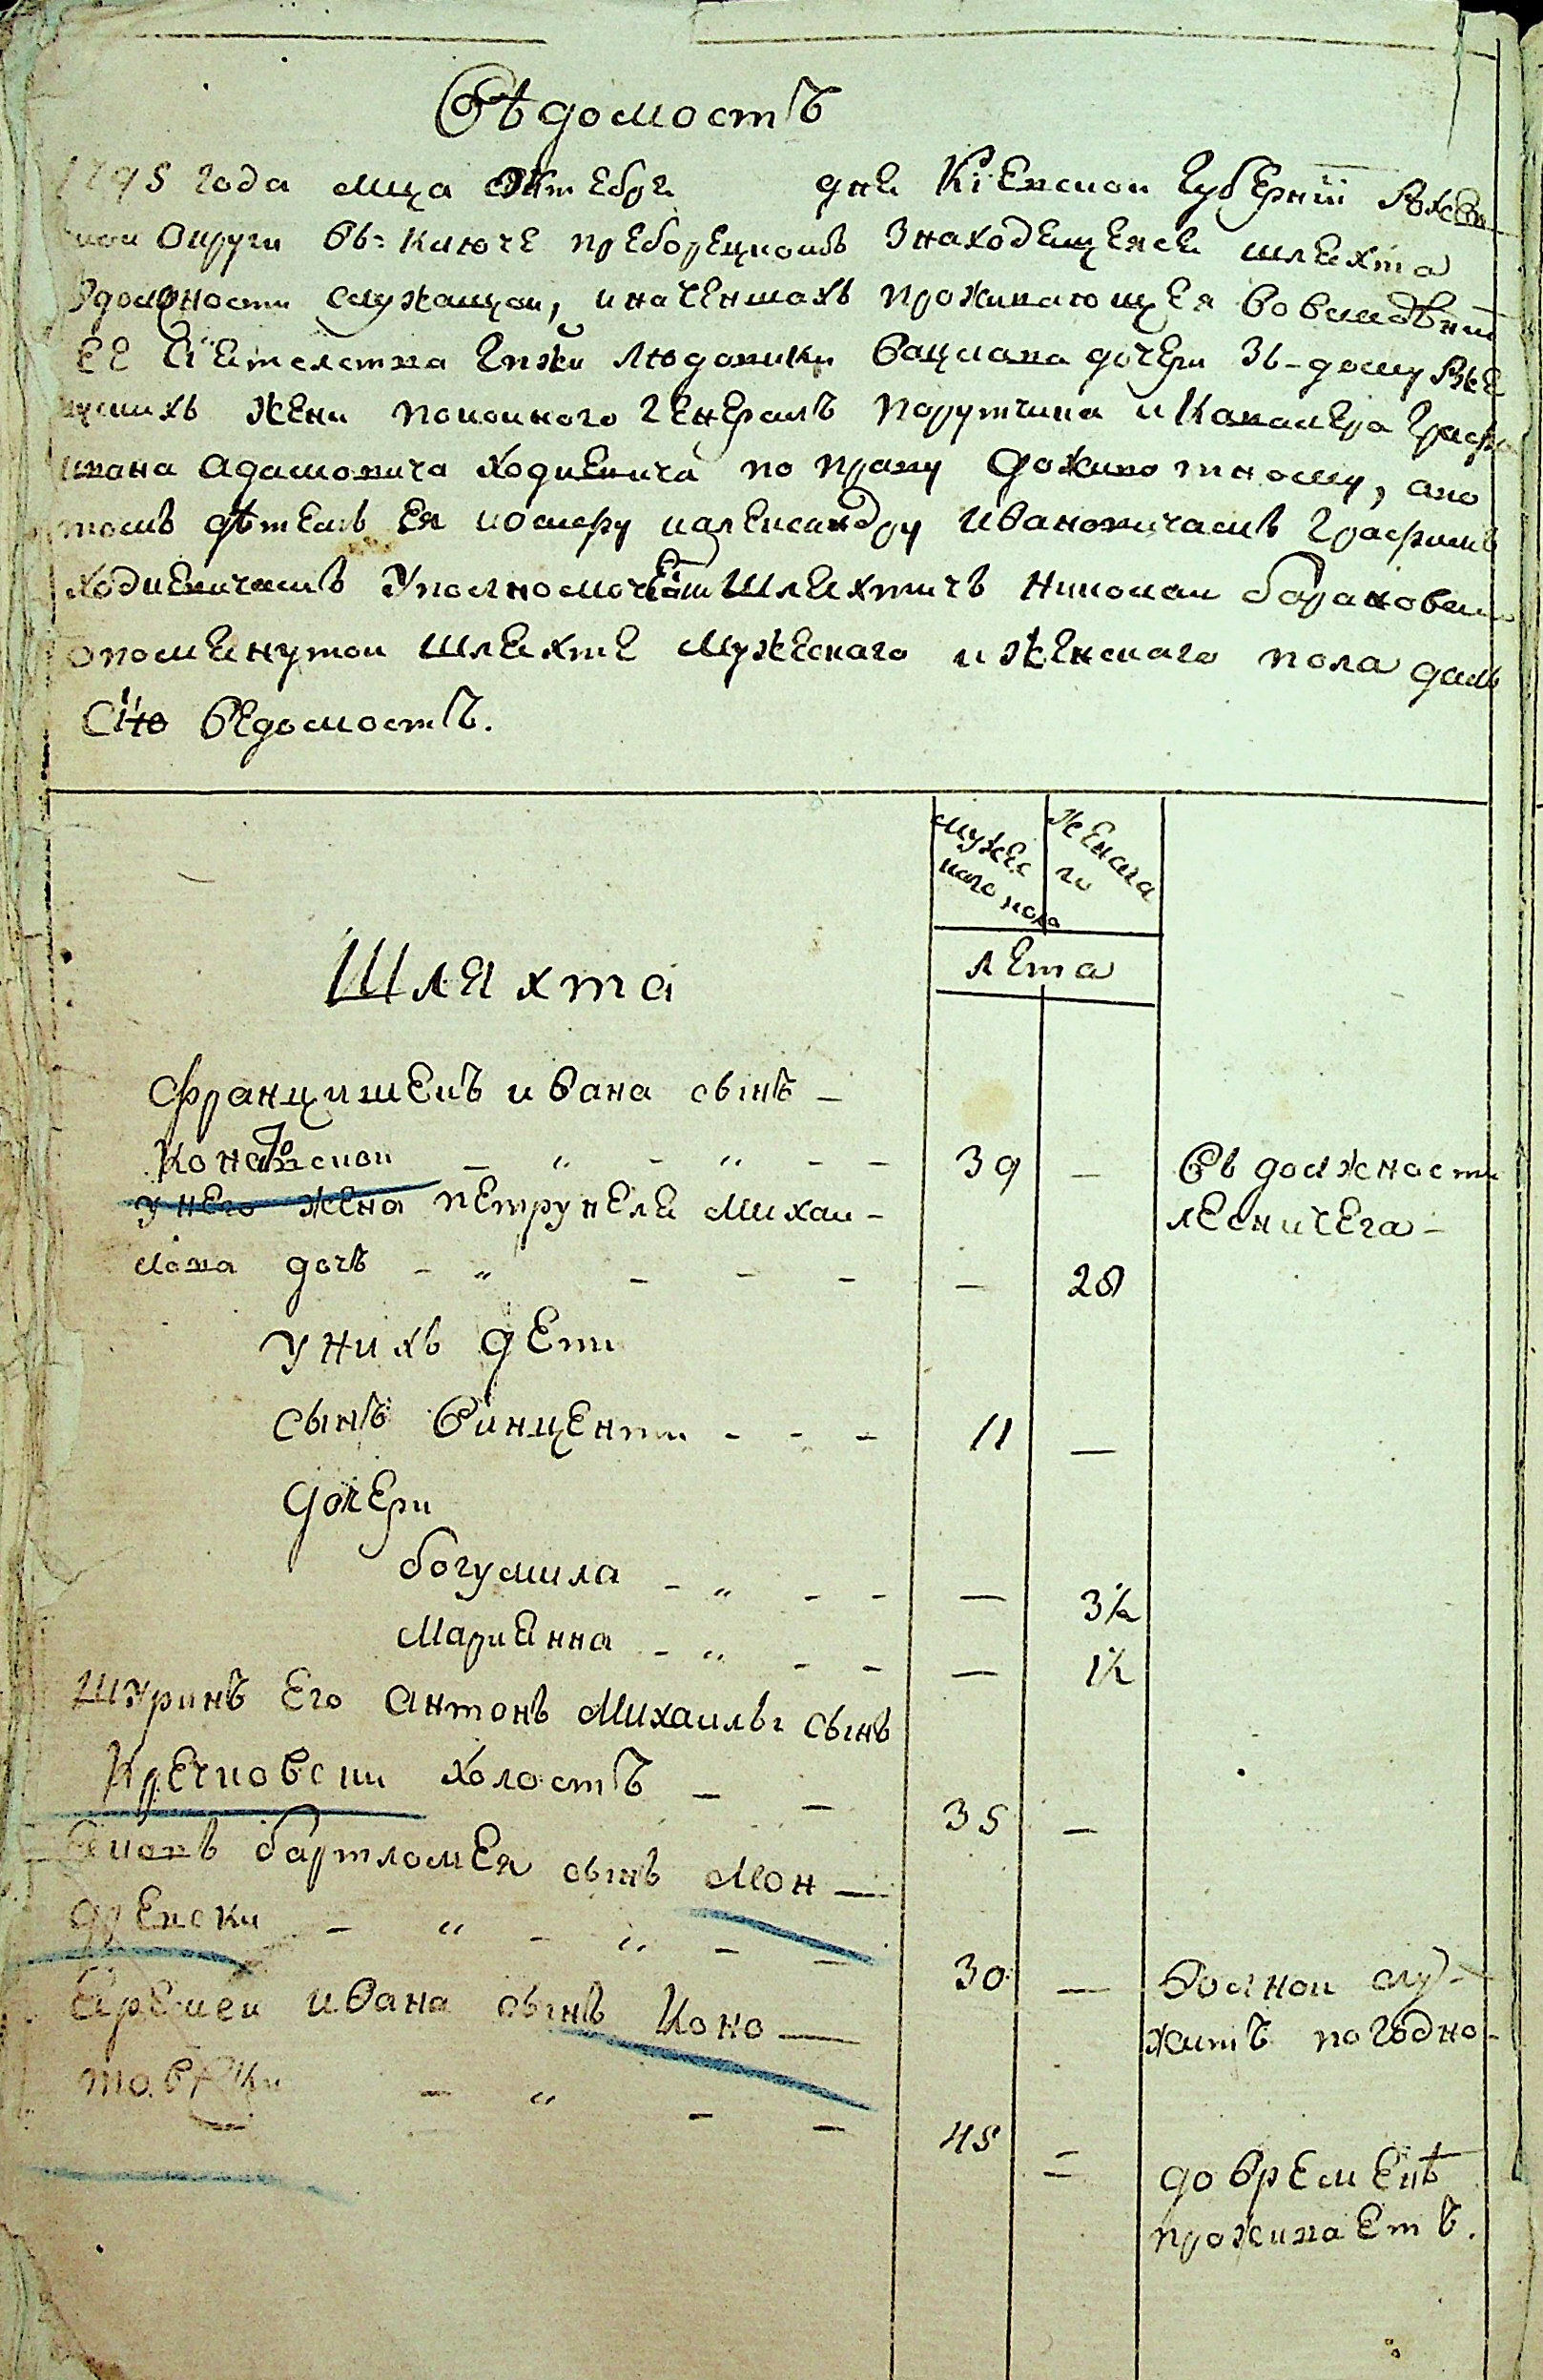 Вѣдомостъ
1795 года мца Октебря дня Кіевской Губерніи
ской Округи въ Ключе преборецкомъ Знаходящеяся шляхта
Вдолжности служащои, иначеншахъ проживающея вовладѣніи
ЕЕ Сіятелства Гпжи Людовики Вацлава дочери Зъ-дому Рже
вускихъ жени покоиного Генералъ Порутчика и Кавалера Графа
ивана адамовича Ходкевича по праву доживотному, апо
томъ дѣтемъ Ея иосифу иалександру Ивановичамъ Графамъ
Ходкевичамъ Уполномочении Шляхтичъ Николаи барановски
опомянутои Шляхте Мужескаго иЖенскаго пола далъ
Сію Ведомостъ.
мужес
каго пола
женска
го
лета
Шляхта
францишекъ ивана сынъ –
Конатовскои – „ – „ – – 39 – Въ должности
унего жена петрунеля Михаи-
лова дочъ – „ – – – — 28
лесничега –
Унихъ дети
сынъ Винценти – – – 11 —
дочери
богумила – „ – – — 3½
Мариянна – „ – – — 1½
Шуринъ Его Антонъ Михаилы сынъ
Кречковски холостъ – – 35 —
Яковъ бартломея сынъ Мон —
древски – „ – „ – – 30 — Волнои слу-
житъ погодно-
Еремеи ивана сынъ Коно —
товски – „ – – 45 = до времени
проживаетъ.